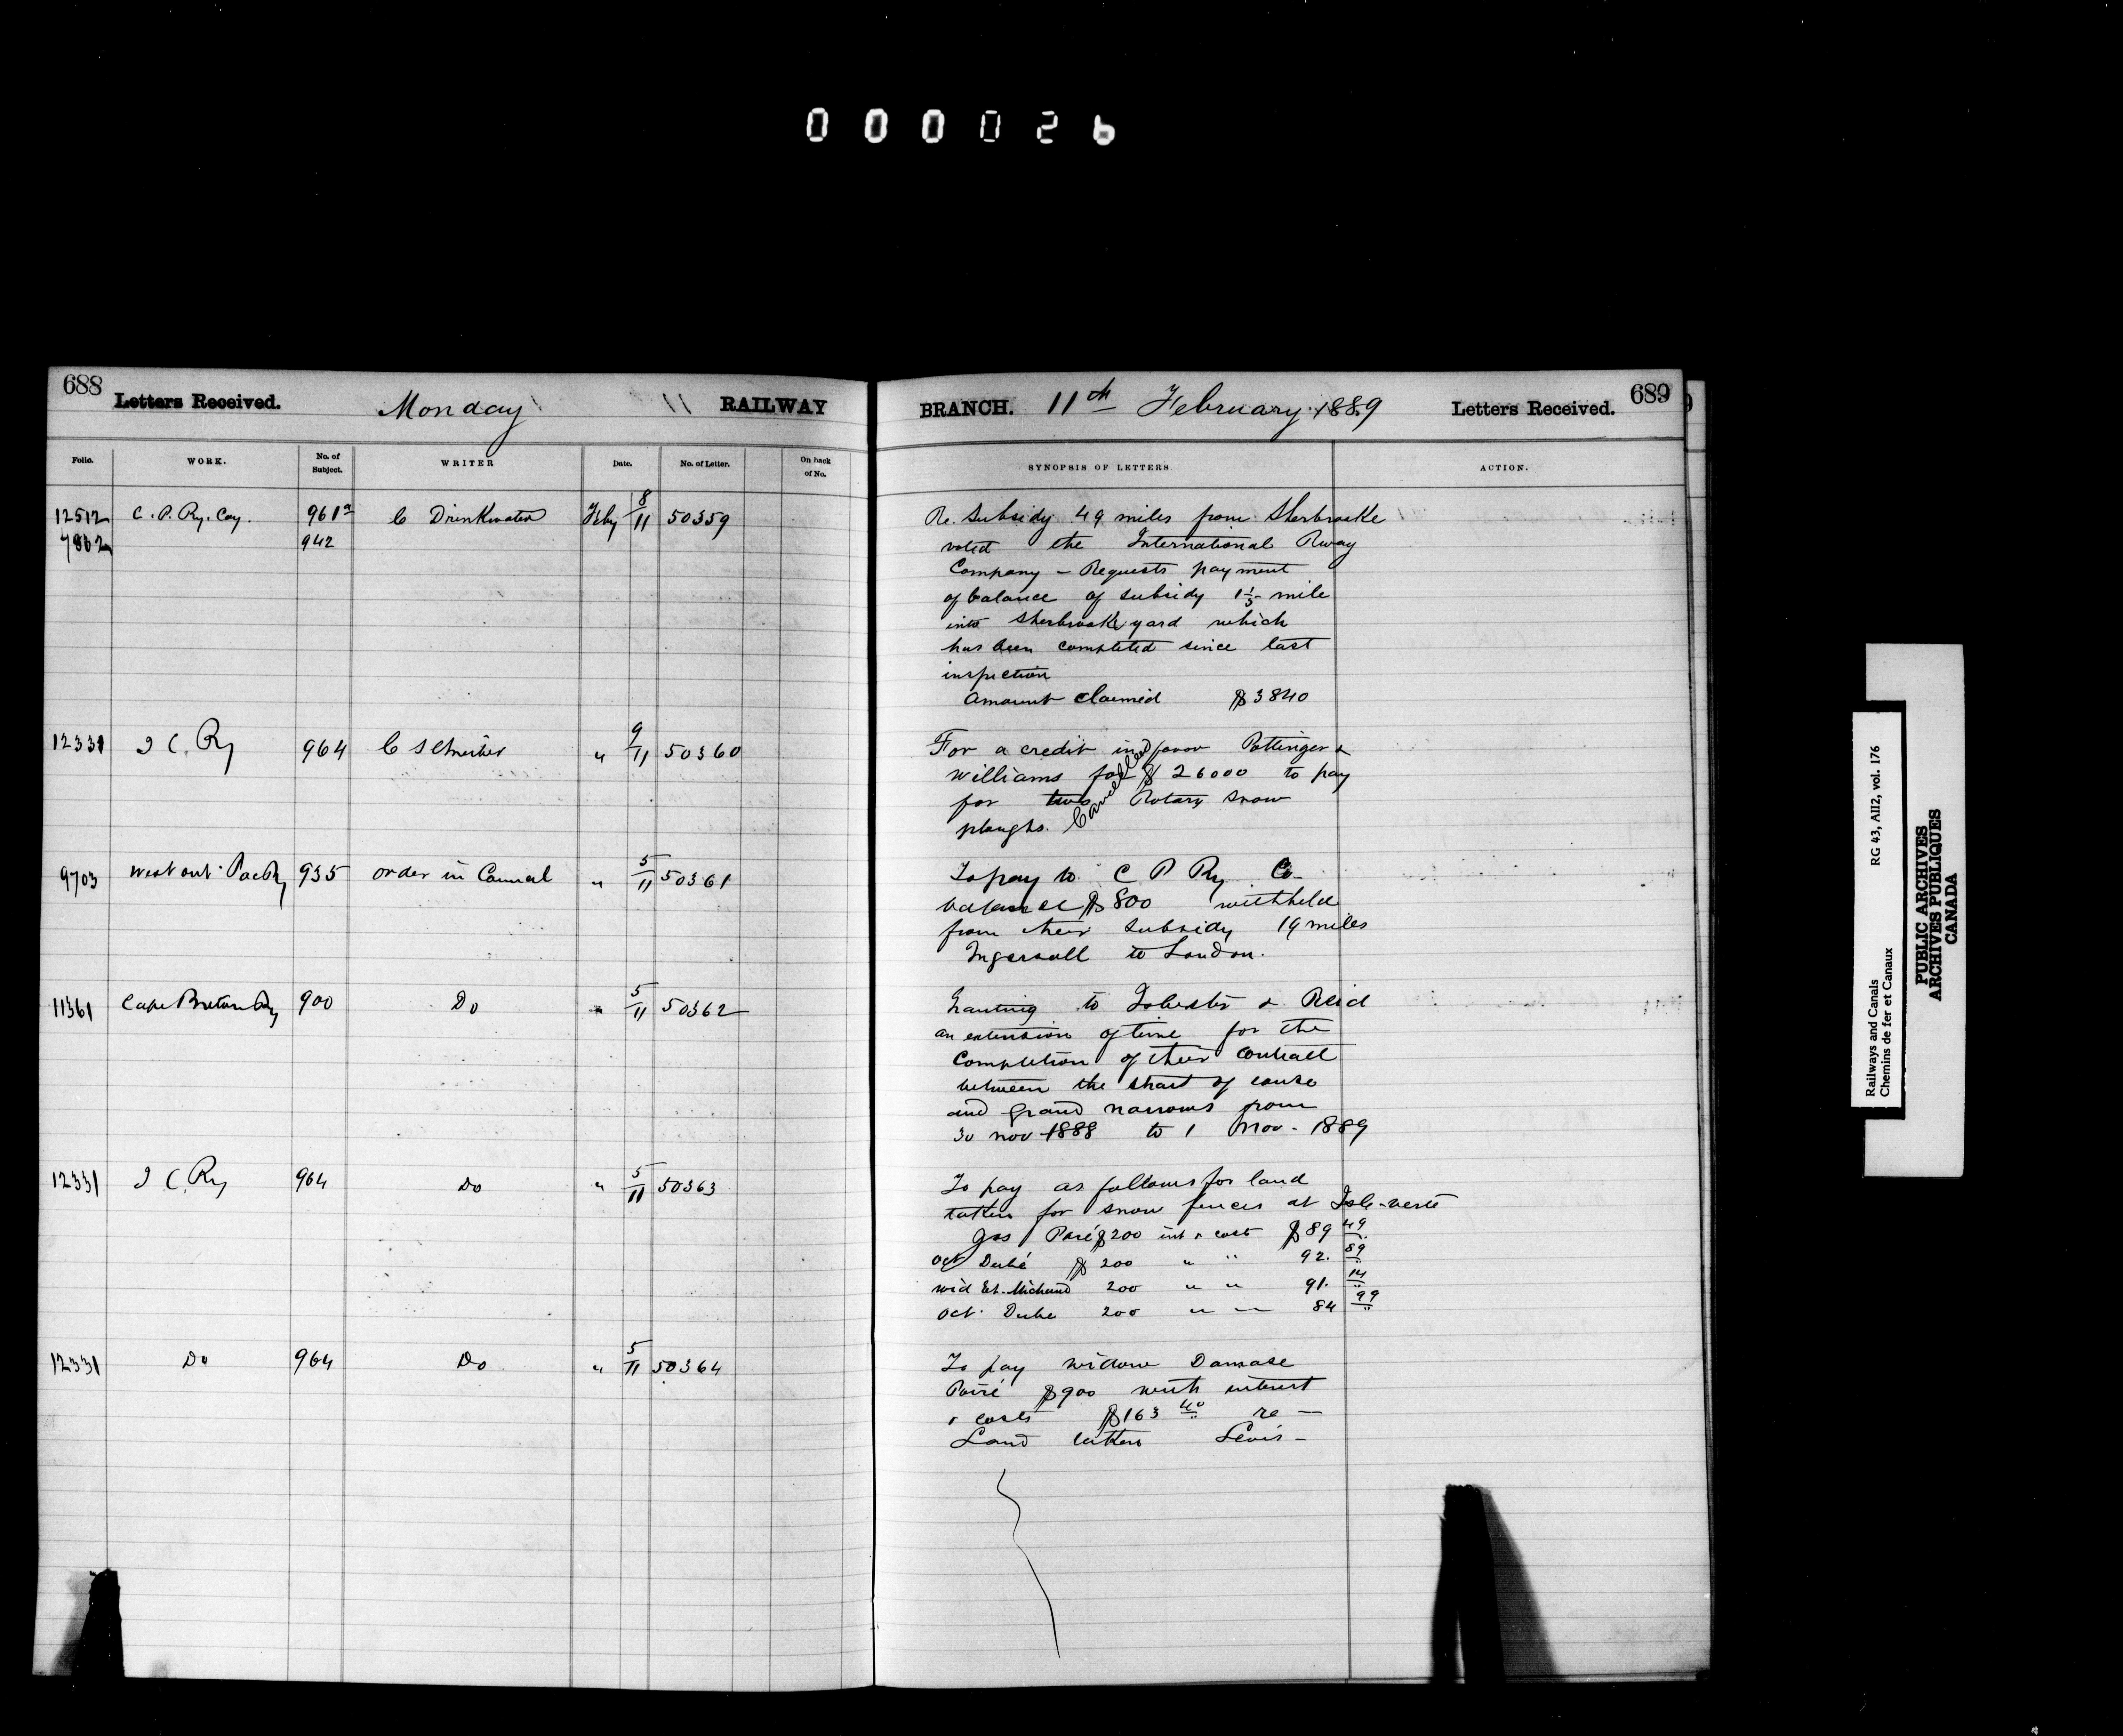 000026
688 Letters Received. Monday 11 RAILWAY
Folio. WORK. No. of Subject. WRITER Date. No. of Letter. On back of No.
12512 C. P. Ry. Coy. 961a C Drinkwater Feby 8/11 50359
7862 942
12331 I C. Ry 964 C Schreiber " 9/11 50360
9703 West ont Pac Ry 935 order in Council " 5/11 50361
11361 Cape Breton Ry 900 Do " 5/11 50362
12331 I C. Ry 964 Do " 5/11 50363
12331 Do 964 Do " 5/11 50364
BRANCH. 11th February 1889 Letters Received. 689
SYNOPSIS OF LETTERS. ACTION.
Re. Subsidy 49 miles from Sherbrooke
voted the International Rway
Company – Requests payment
of balance of subsidy 1 1/5 mile
into Sherbrooke yard which
has been completed since last
inspection
Amount claimed $3840
For a credit in favor Pottinger &
Williams for $ 26000 to pay
for two Rotary snow
ploughs. Cancelled
To pay to C P Ry Co
balance $800 withheld
from their subsidy 19 miles
Ingersoll to London.
Granting to Isbester & Reid
an extension of time for the
Completion of their Contract
between the strait of canso
and grand narrows from
30 nov 1888 to 1 Nov. 1889
To pay as follows for land
taken for snow fences at Isle-verte
Jos Paré $200 int & cost $89 49
Oct Dubé $ 200 " " 92. 89
wid Et. Michaud 200 " " 91. 14
Oct. Dube 200 " " 84 99
To pay widow Damase
Poiré $900 with interest
& costs $163 40 re —
Land taken Levis –
Railways and Canals RG 43, AII2, vol. 176
Chemins de fer et Canaux
PUBLIC ARCHIVES
ARCHIVES PUBLIQUES
CANADA